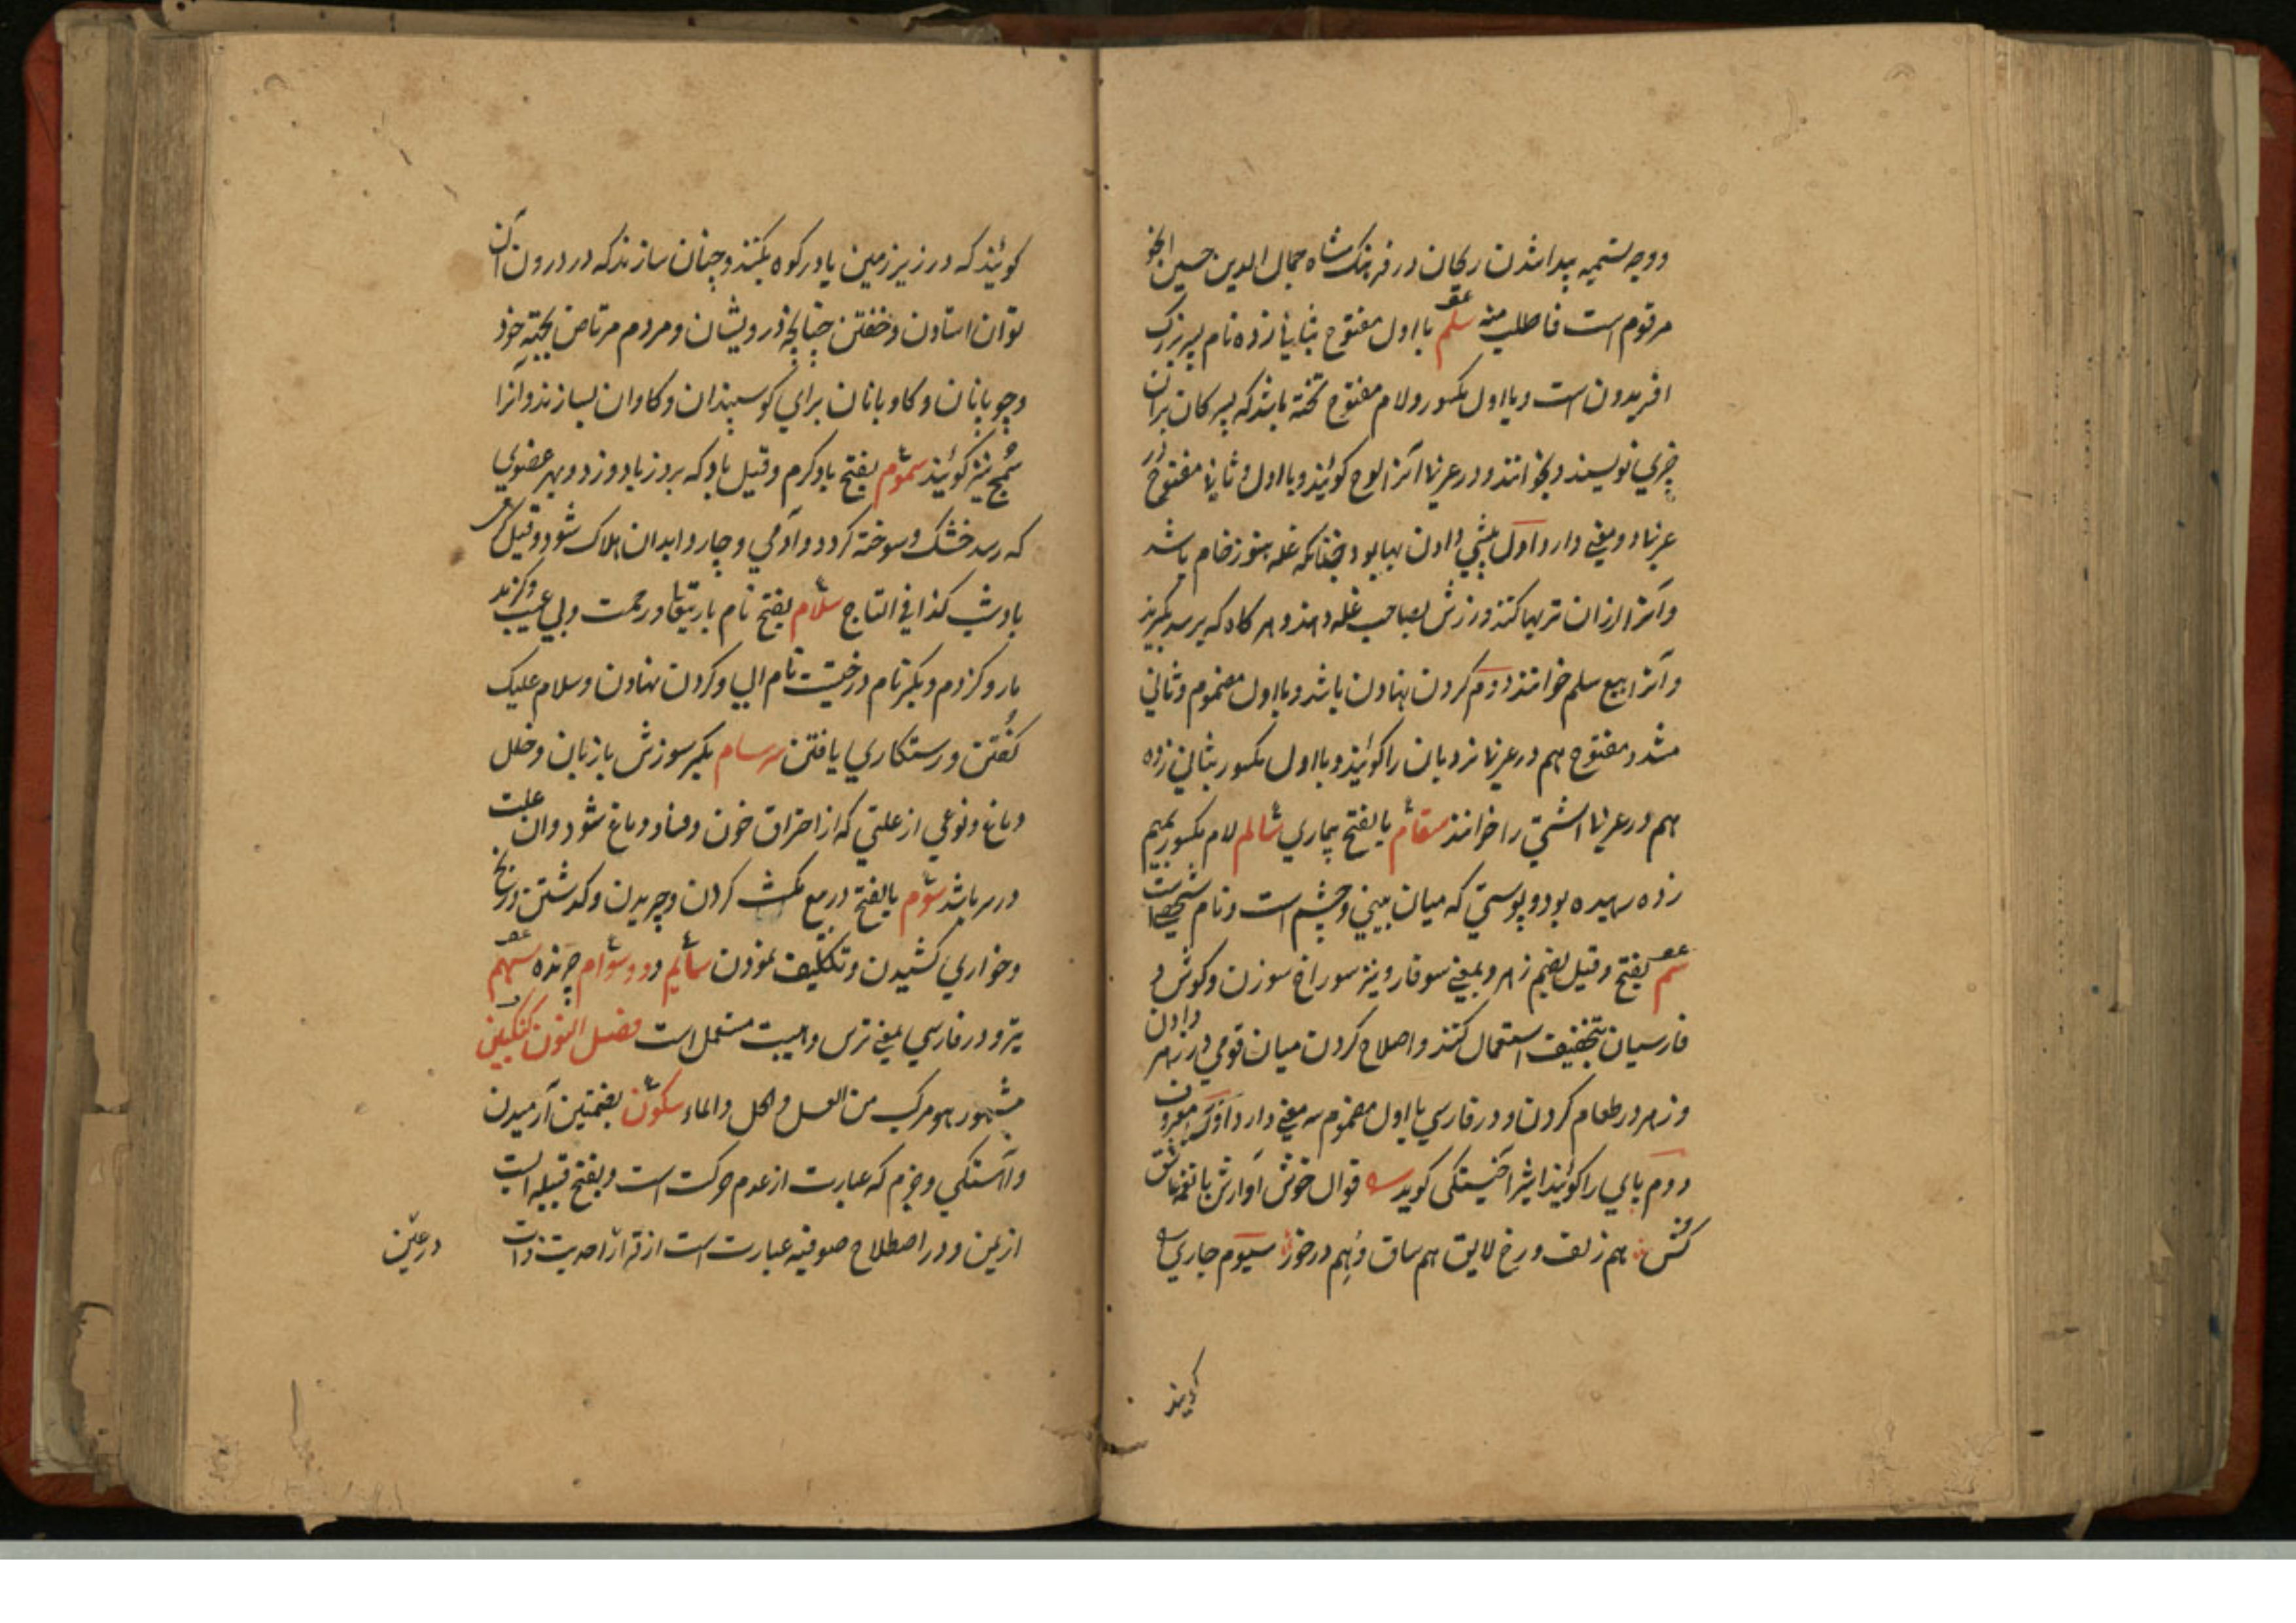 ووجه تسمیه پیدا شدن ریحان در فرهنک شاه جمال الدین حسین انجو
مرقوم است فاطلب منه سلم با اول مفتوح بثانی زده نام پسر بزرک
افریدون است و با اول مکسور و لام مفتوح تخته باشد که پسرکان بران
چیزی نویسند و بخوانند و در عربی آنرا لوح کویند و با اول و ثانی مفتوح در
عربی دو معنی دارد اول پیشی دادن بها بود چنانکه غله هنوز خام باشد
و آنرا ارزان تر بها کنند و زرش بصاحب غله دهند و هر کاه که برسد بکیرند
و آنرا بیع سلم خوانند دوم کردن نهادن باشد و با اول مضموم و ثانی
مشدد مفتوح هم در عربی نردبان را کویند و با اول مکسور بثانی زده
هم در عربی آشتی را خوانند سقام بالفتح بیماری سالم لام مکسور بمیم
زده رهیده بود و پوستی که میان بینی و چشم است و نام شخصی است
سم بفتح و قیل بضم زهر و بمعنی سوفار و نیز سوراخ سوزن و کوش و
فارسیان بتخفیف استعمال کنند و اصلاح کردن میان قومی و زهر دادن
و زهر در طعام کردن و در فارسی با اول مضموم سه معنی دارد اول معروف
دوم پای را کویند اثیر اخسیکتی کوید قوال خوش آوازش با نغمه عاشق
کش هم زلف و رخ لایق هم ساق و هم درخور سیوم جاری
کویند
کویند که در زیر زمین یا در کوه بکنند و چنان سازند که در درون آن
توان استادن و خفتن چنانچه درویشان و مردم مرتاض بجهة خود
و چوپانان و کاوبانان برای کوسپندان و کاوان بسازند و آنرا
سمج نیز کویند سموم بفتح باد کرم و قیل باد که بروز باد وزد و بهر عضوی
که رسد خشک و سوخته کردد و آدمی و چاروا بدان هلاک شود و قیل کرم
باد شب کذا فی التاج سلام بفتح نام باریتعالی و رحمت و بی عیب و کزند
مار و کزدم و بکسر نام درختیست نام الهی و کردن نهادن و سلام علیک
کفتن و رستکاری یافتن سرسام بکسر سوزش یا زیان و خلل
دماغ و نوعی از علتی که از احتراق خون و فساد دماغ شود و آن علت
در سر باشد سوم بالفتح در بیع مکث کردن و چریدن و کذشتن و رنج
و خواری کشیدن و تکلیف نمودن سایم و سوام چرنده سهم
تیر و در فارسی بمعنی ترس و هیبت مستعمل است فصل النون سکنکبین
مشهور هو مرکب من العسل و الخل و الماء سکون بضمتین آرمیدن
و آهستکی و جزم که عبارت از عدم حرکت است و بفتح قبیله ایست
از یمن و در اصطلاح صوفیه عبارت است از قرار احدیت ذات
در عین